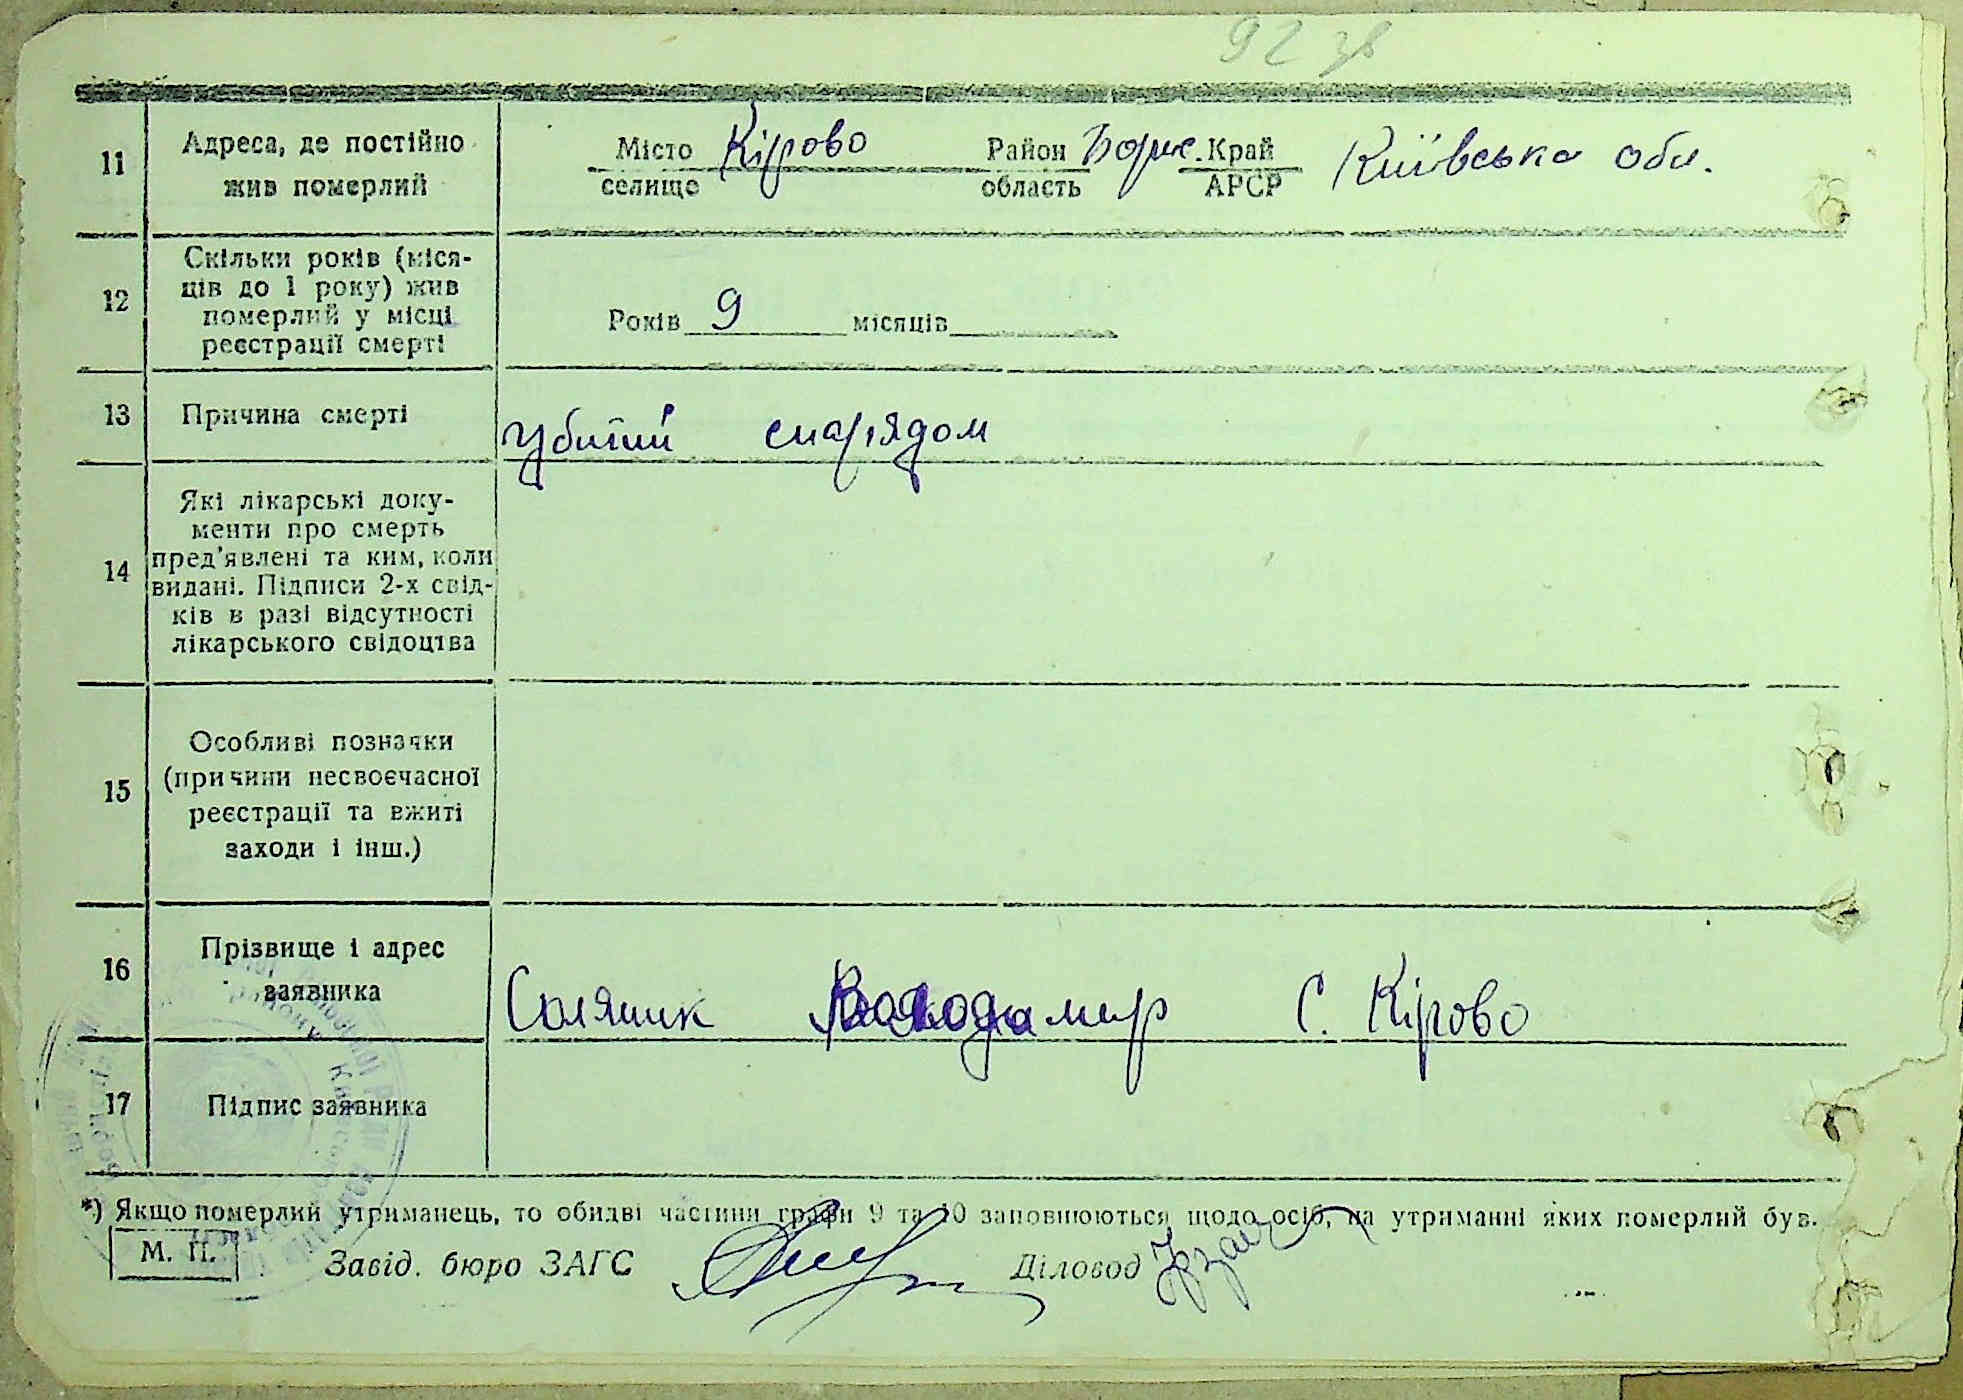 92 зв
11
Адреса, де постійно
жив померлий
Місто Кірово Район Борис. Край Київська обл.
селище область АРСР
12
Скільки років (міся-
ців до 1 року) жив
померлий у місці
реєстрації смерті
Років 9 місяців
13
Причина смерті
Убитий снарядом
14
Які лікарські доку-
менти про смерть
пред'явлені та ким, коли
видані. Підписи 2-х свід-
ків в разі відсутності
лікарського свідоцтва
15
Особливі позначки
(причини несвоєчасної
реєстрації та вжиті
заходи і інш.)
16
Прізвище і адрес
заявника
Соляник Володимир С. Кірово
17
Підпис заявника
*) Якщо померлий утриманець, то обидві частини графи 9 та 10 заповнюються щодо осіб, на утриманні яких померлий був.
М. П.
Завід. бюро ЗАГС Діловод